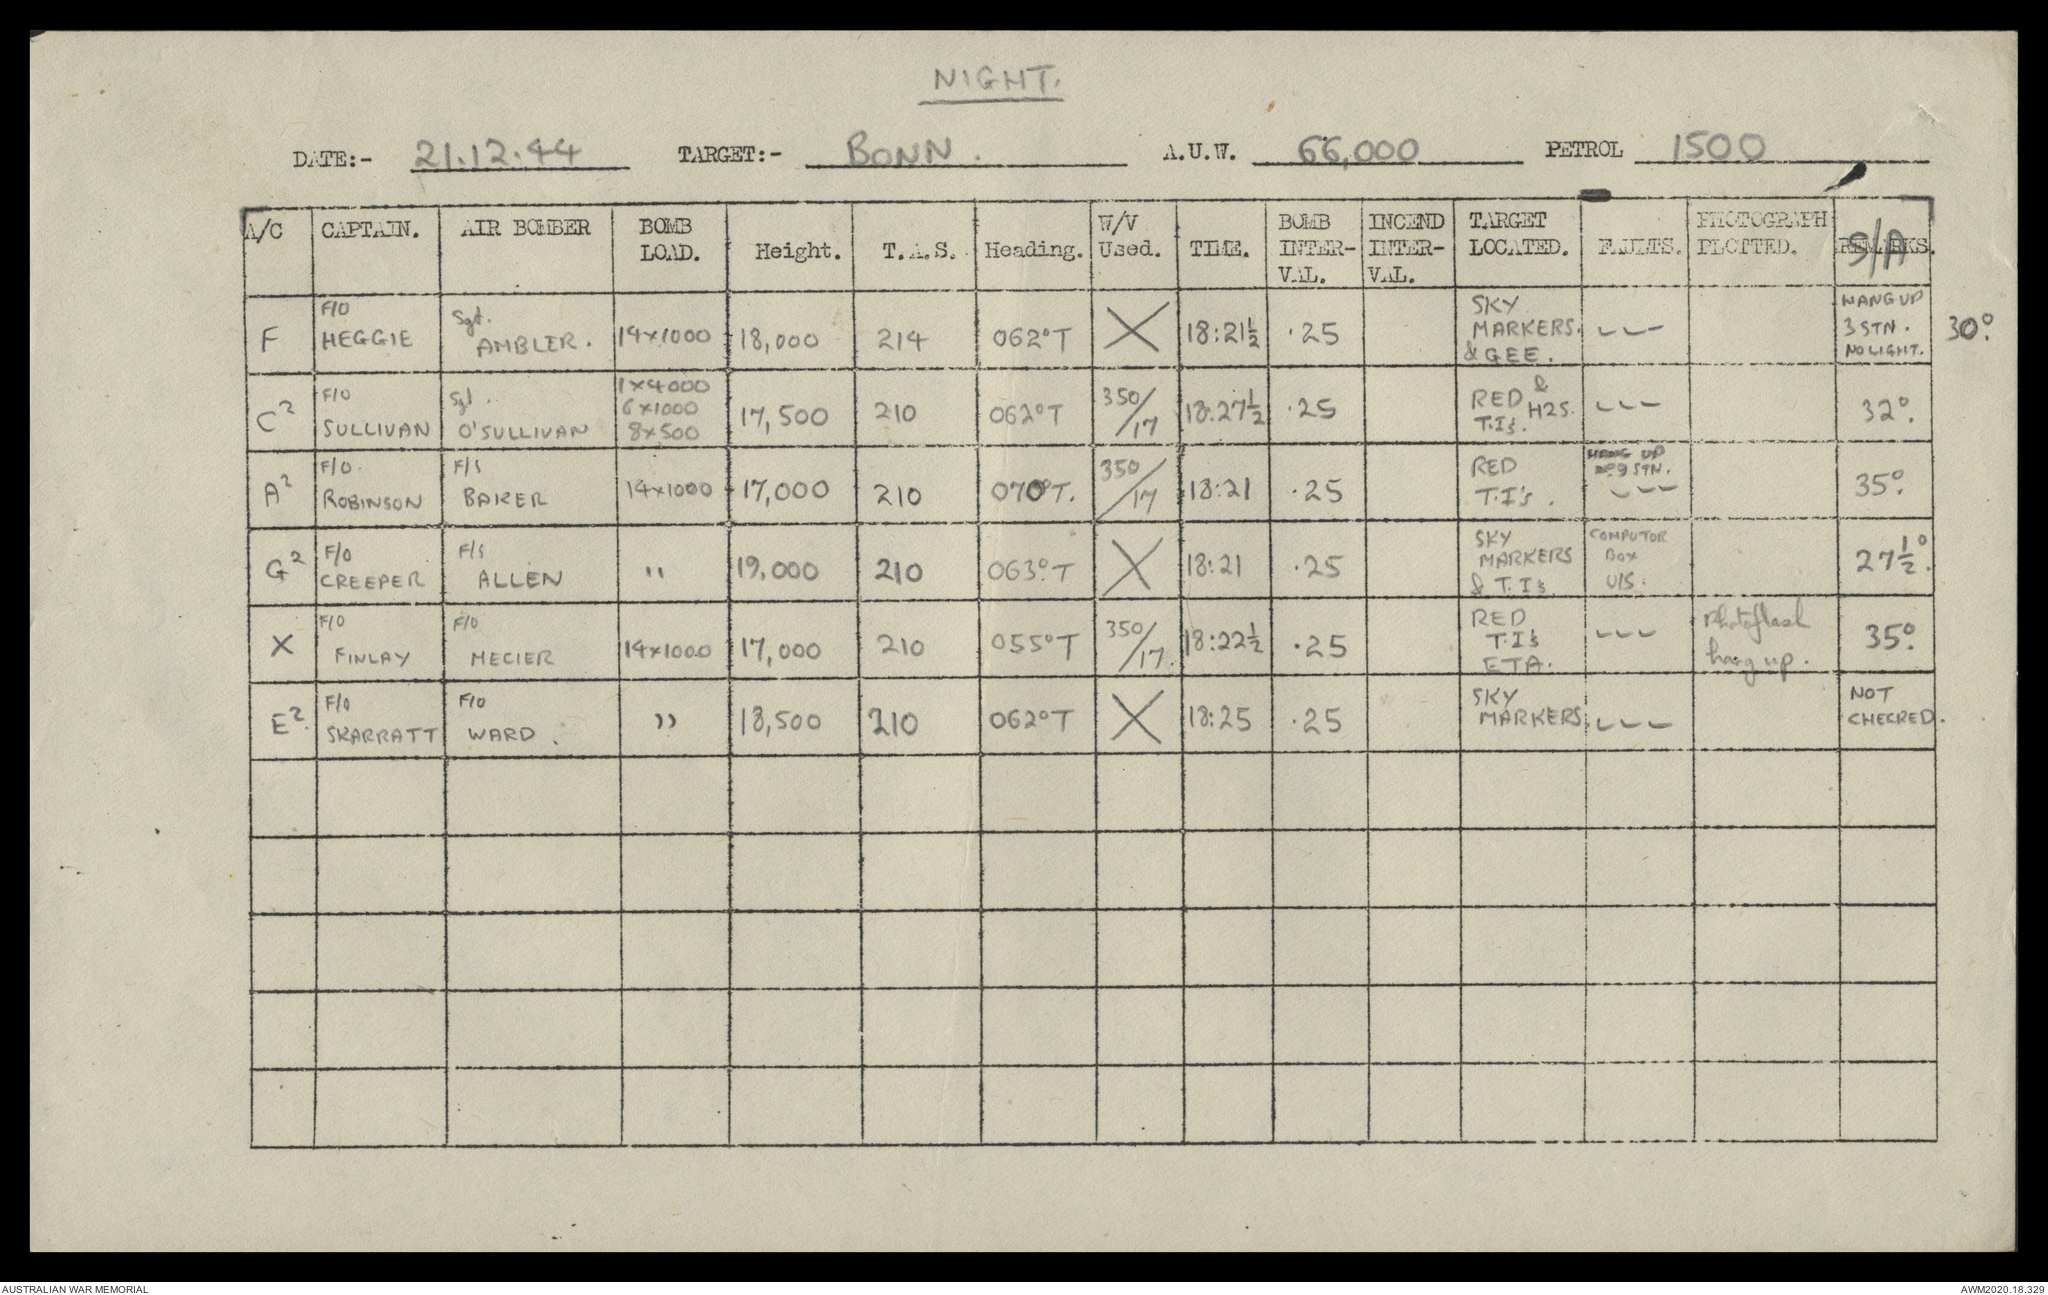 NIGHT.
DATE:- 21.12.44 TARGET:- BONN. A.U.W. 66,000 PETROL 1500
A/C CAPTAIN. AIR BOMBER BOMB LOAD. Height. T.A.S. Heading. W/V Used. TIME. BOMB INTER-VAL. INCEND INTER-VAL. TARGET LOCATED. FAULTS. PHOTOGRAPH PLOTTED. REMARKS. S/A
F F/O HEGGIE Sgt. AMBLER. 14x1000 18,000 214 062°T X 18:21½ .25 SKY MARKERS. & GEE. --- HANG UP 3 STN. NO LIGHT. 30°.
C² F/O SULLIVAN Sgt. O'SULLIVAN 1x4000 6x1000 8x500 17,500 210 062°T 350/17 18:27½ .25 RED & H2S. T.I's. --- 32°.
A² F/O. ROBINSON F/S BAKER 14x1000 17,000 210 070°T. 350/17 18:21 .25 RED T.I's. HANG UP No 9 STN. --- 35°.
G² F/O CREEPER F/S ALLEN " 19,000 210 063°.T X 18:21 .25 SKY MARKERS & T.I's. COMPUTOR BOX U/S. 27½°.
X F/O FINLAY F/O MECIER 14x1000 17,000 210 055°T 350/17. 18:22½ .25 RED T.I's ETA. --- Photoflash hang up. 35°.
E². F/O SKARRATT F/O WARD. " 18,500 210 062°T X 18:25 .25 SKY MARKERS. --- NOT CHECKED.
AUSTRALIAN WAR MEMORIAL AWM2020.18.329